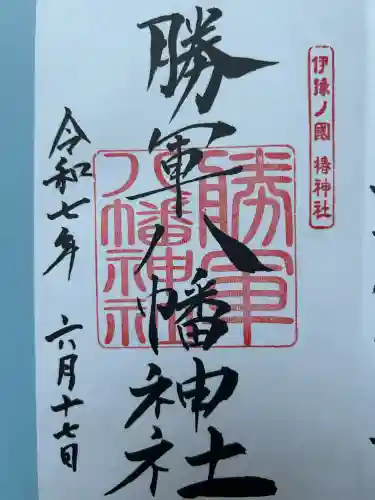 伊豫ノ國 椿神社
勝軍八幡神社
勝軍八幡神社
令和七年 六月十七日